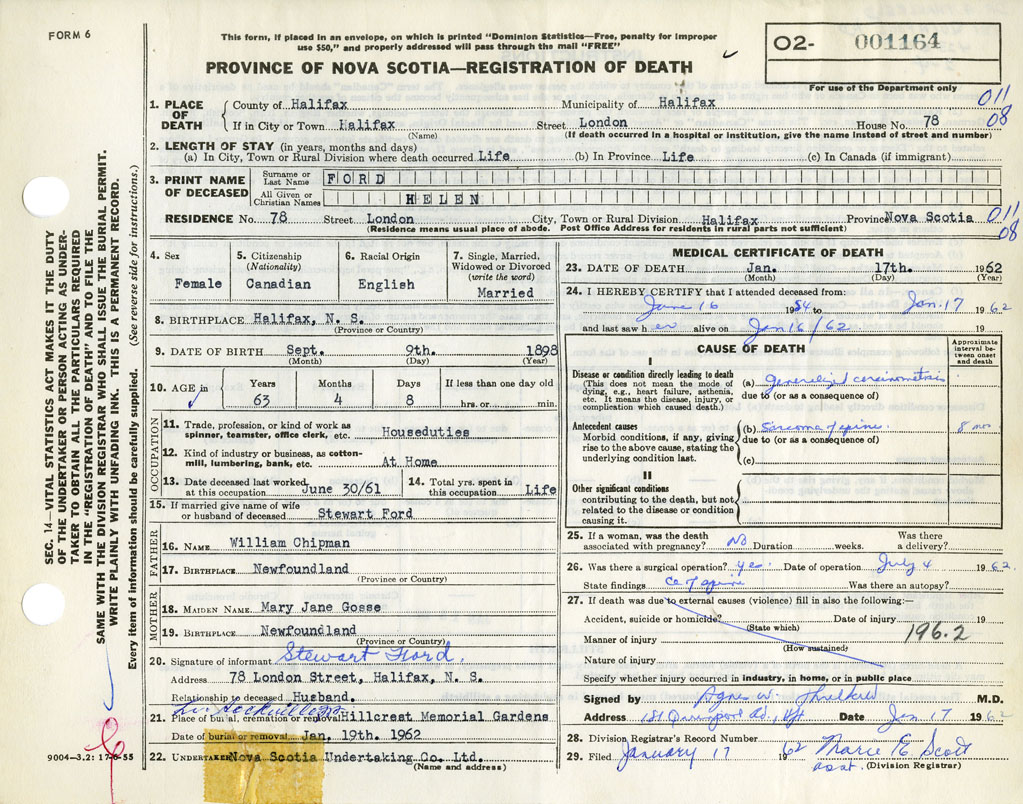 FORM 6
This form, if placed in an envelope, on which is printed "Dominion Statistics—Free, penalty for improper
use $50," and properly addressed will pass through the mail "FREE"
PROVINCE OF NOVA SCOTIA—REGISTRATION OF DEATH
02- 001164
For use of the Department only
SEC. 14—VITAL STATISTICS ACT MAKES IT THE DUTY
OF THE UNDERTAKER OR PERSON ACTING AS UNDER-
TAKER TO OBTAIN ALL THE PARTICULARS REQUIRED
IN THE "REGISTRATION OF DEATH" AND TO FILE THE
SAME WITH THE DIVISION REGISTRAR WHO SHALL ISSUE THE BURIAL PERMIT.
WRITE PLAINLY WITH UNFADING INK. THIS IS A PERMANENT RECORD.
Every item of information should be carefully supplied. (See reverse side for instructions.)
1. PLACE OF DEATH
County of Halifax Municipality of Halifax 011
If in City or Town Halifax Street London House No. 78 08
(Name) (If death occurred in a hospital or institution, give the name instead of street and number)
2. LENGTH OF STAY (in years, months and days)
(a) In City, Town or Rural Division where death occurred Life (b) In Province Life (c) In Canada (if immigrant)
3. PRINT NAME OF DECEASED
Surname or Last Name FORD
All Given or Christian Names HELEN
RESIDENCE No. 78 Street London City, Town or Rural Division Halifax Province Nova Scotia 011
(Residence means usual place of abode. Post Office Address for residents in rural parts not sufficient) 08
4. Sex
Female
5. Citizenship
(Nationality)
Canadian
6. Racial Origin
English
7. Single, Married,
Widowed or Divorced
(write the word)
Married
8. BIRTHPLACE Halifax, N. S.
(Province or Country)
9. DATE OF BIRTH Sept. 9th. 1898
(Month) (Day) (Year)
10. AGE in Years Months Days If less than one day old
63 4 8 hrs. or min.
OCCUPATION
11. Trade, profession, or kind of work as
spinner, teamster, office clerk, etc. Houseduties
12. Kind of industry or business, as cotton-
mill, lumbering, bank, etc. At Home
13. Date deceased last worked
at this occupation June 30/61
14. Total yrs. spent in
this occupation Life
15. If married give name of wife
or husband of deceased Stewart Ford
FATHER
16. NAME William Chipman
17. BIRTHPLACE Newfoundland
(Province or Country)
MOTHER
18. MAIDEN NAME Mary Jane Gosse
19. BIRTHPLACE Newfoundland
(Province or Country)
20. Signature of informant Stewart Ford.
Address 78 London Street, Halifax, N. S.
Relationship to deceased Husband.
21. Place of burial, cremation or removal Hillcrest Memorial Gardens
Date of burial or removal Jan. 19th. 1962
22. UNDERTAKER Nova Scotia Undertaking Co. Ltd.
(Name and address)
9004—3.2: 17-6-55
MEDICAL CERTIFICATE OF DEATH
23. DATE OF DEATH Jan. 17th. 1962
(Month) (Day) (Year)
24. I HEREBY CERTIFY that I attended deceased from:
June 16 1954 to Jan. 17 1962
and last saw her alive on Jan 16/62 19
CAUSE OF DEATH
Approximate
interval be-
tween onset
and death
I
Disease or condition directly leading to death
(This does not mean the mode of
dying, e.g., heart failure, asthenia,
etc. It means the disease, injury, or
complication which caused death.)
(a) generalized carcinomatosis
due to (or as a consequence of)
Antecedent causes
Morbid conditions, if any, giving
rise to the above cause, stating the
underlying condition last.
(b) Sarcoma of spine. 8 mos
due to (or as a consequence of)
(c)
II
Other significant conditions
contributing to the death, but not
related to the disease or condition
causing it.
25. If a woman, was the death
associated with pregnancy? No Duration weeks. Was there
a delivery?
26. Was there a surgical operation? yes. Date of operation July 4 1962.
State findings Ca of spine Was there an autopsy?
27. If death was due to external causes (violence) fill in also the following:—
Accident, suicide or homicide? Date of injury 19
(State which)
196.2
Manner of injury
(How sustained)
Nature of injury
Specify whether injury occurred in industry, in home, or in public place
Signed by Agnes W. M.D.
Address 181 Rd., Hfx Date Jan 17 1962
28. Division Registrar's Record Number
29. Filed January 17 1962 Marie E. Scott
asst. (Division Registrar)